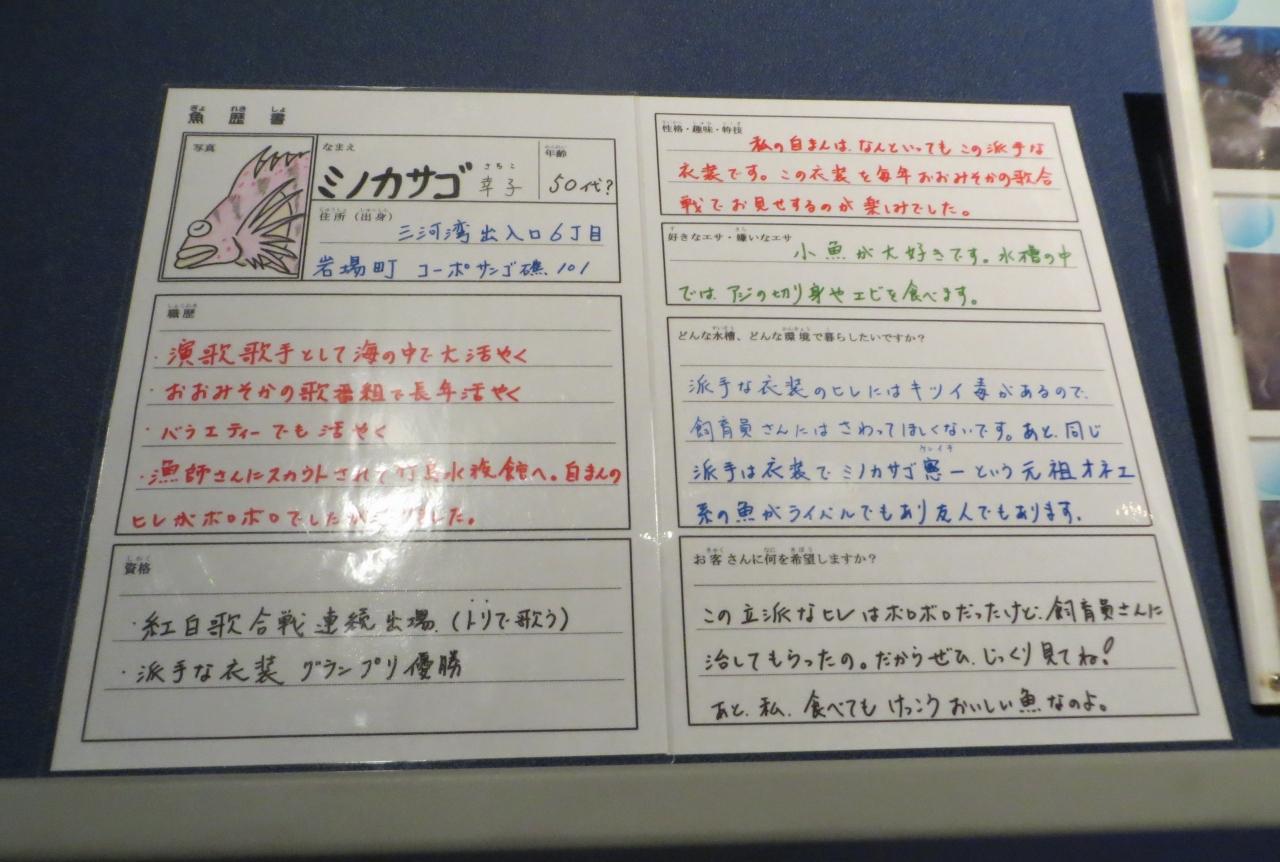 魚歴書
写真
なまえ
ミノカサゴ 幸子
年齢
50代?
住所(出身)
三河湾出入口6丁目
岩場町 コーポサンゴ礁101
職歴
・演歌歌手として海の中で大活やく
・おおみそかの歌番組で長年活やく
・バラエティーでも活やく
・漁師さんにスカウトされて竹島水族館へ。自まんの
ヒレがボロボロでしたが
ました。
資格
・紅白歌合戦連続出場。(トリで歌う)
・派手な衣装グランプリ優勝
性格・趣味・特技
私の自まんは、なんといってもこの派手な
衣装です。この衣装を毎年おおみそかの歌合
戦でお見せするのが楽しみでした。
好きなエサ・嫌いなエサ
小魚が大好きです。水槽の中
では、アジの切り身やエビを食べます。
どんな水槽、どんな環境で暮らしたいですか?
派手な衣装のヒレにはキツイ毒があるので、
飼育員さんにはさわってほしくないです。あと、同じ
派手は衣装でミノカサゴ憲一という元祖オネエ
系の魚がライバルでもあり友人でもあります。
お客さんに何を希望しますか?
この立派なヒレはボロボロだったけど、飼育員さんに
治してもらったの。だからぜひ、じっくり見てね!
あと、私、食べてもけっこうおいしい魚なのよ。